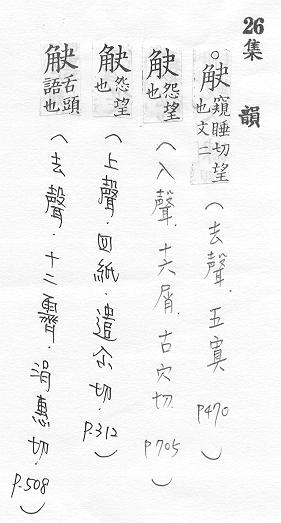 26 集 韻
○觖 窺睡切望也文二 (去聲.五寘 p470)
觖 怨望也 (入聲.十六屑.古穴切.p705)
觖 怨望也 (上聲.四紙.遣尒切.p.312)
觖 舌頭語也 (去聲.十二霽.涓惠切.p.508)